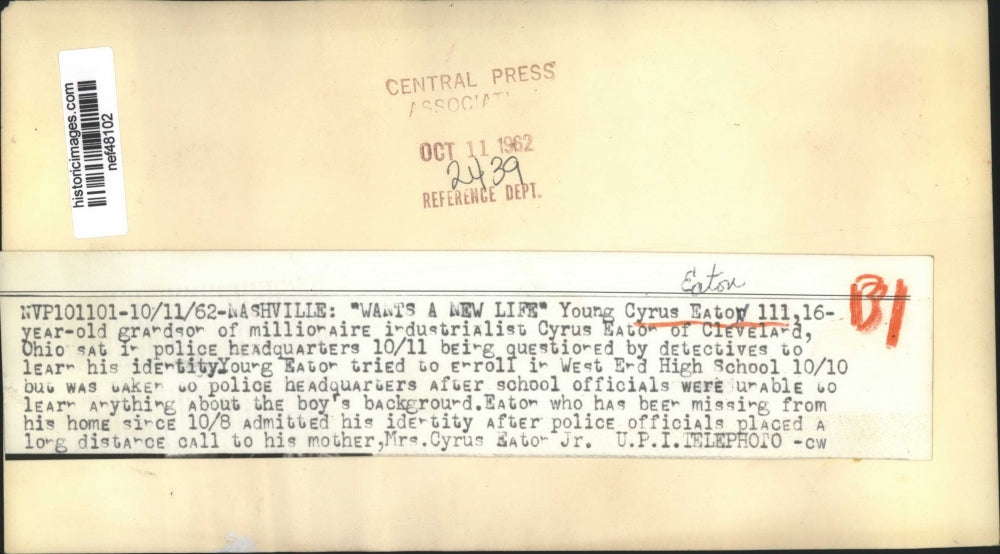 CENTRAL PRESS
OCT 11 1962
2439
REFERENCE DEPT.
historicimages.com
nef48102
Eaton
B1
NVP101101-10/11/62-NASHVILLE: "WANTS A NEW LIFE" Young Cyrus Eaton 111,16-
year-old grandson of millionaire industrialist Cyrus Eaton of Cleveland,
Ohio sat in police headquarters 10/11 being questioned by detectives to
learn his identityYoung Eaton tried to enroll in West End High School 10/10
but was taken to police headquarters after school officials were unable to
learn anything about the boy's background.Eaton who has been missing from
his home since 10/8 admitted his identity after police officials placed a
long distance call to his mother,Mrs.Cyrus Eaton Jr. U.P.I.TELEPHOTO -cw